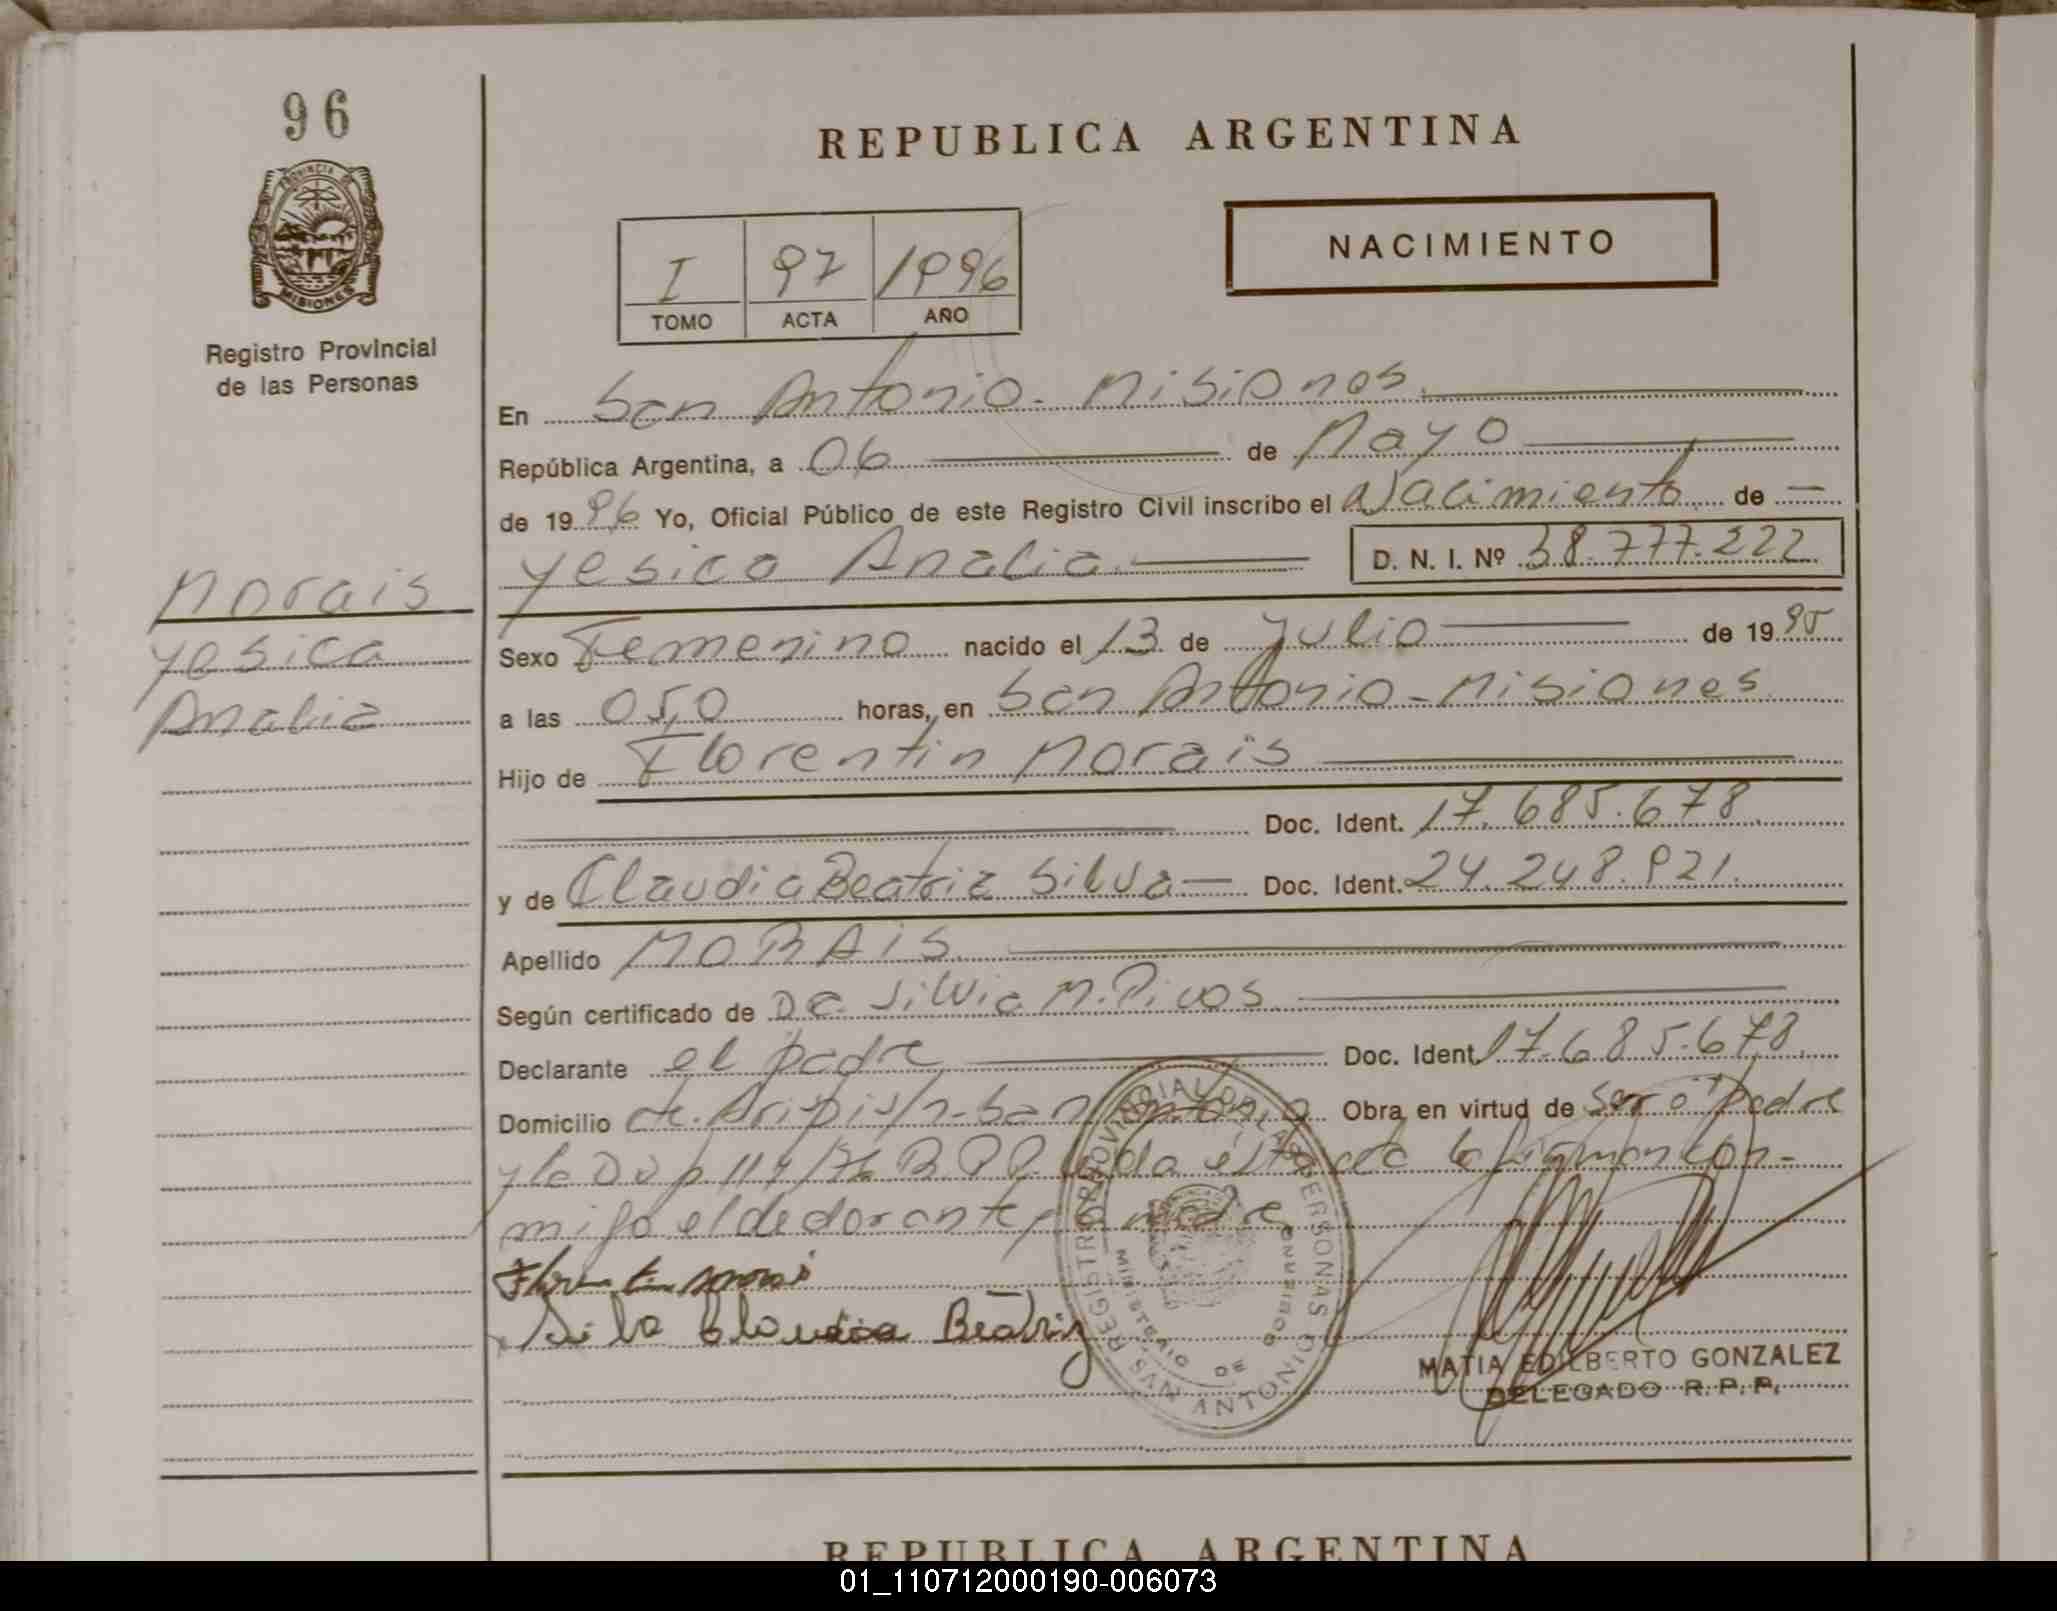 96
REPUBLICA ARGENTINA
PROVINCIA DE
MISIONES
Registro Provincial
de las Personas
NACIMIENTO
I 97 1996
TOMO ACTA AÑO
En San Antonio - Misiones
República Argentina, a 06 de Mayo
de 1996 Yo, Oficial Público de este Registro Civil inscribo el Nacimiento de
Yesica Analia D. N. I. Nº 38.777.222
Morais
Yesica
Analia
Sexo Femenino nacido el 13 de Julio de 1995
a las 05,0 horas, en San Antonio - Misiones
Hijo de Florentin Morais
Doc. Ident. 17.685.678
y de Claudia Beatriz Silva Doc. Ident. 24.248.921.
Apellido MORAIS
Según certificado de Dr. Silvia M.
Declarante el padre Doc. Ident 17.685.678
Domicilio s/n - San Antonio Obra en virtud de ser padre
y la 
migo el declarante y la madre
Silva Claudia Beatriz
REGISTRO PROVINCIAL DE LAS PERSONAS
MINISTERIO DE GOBIERNO
SAN ANTONIO
MATIA EDILBERTO GONZALEZ
DELEGADO R. P. P.
REPUBLICA ARGENTINA
01_110712000190-006073